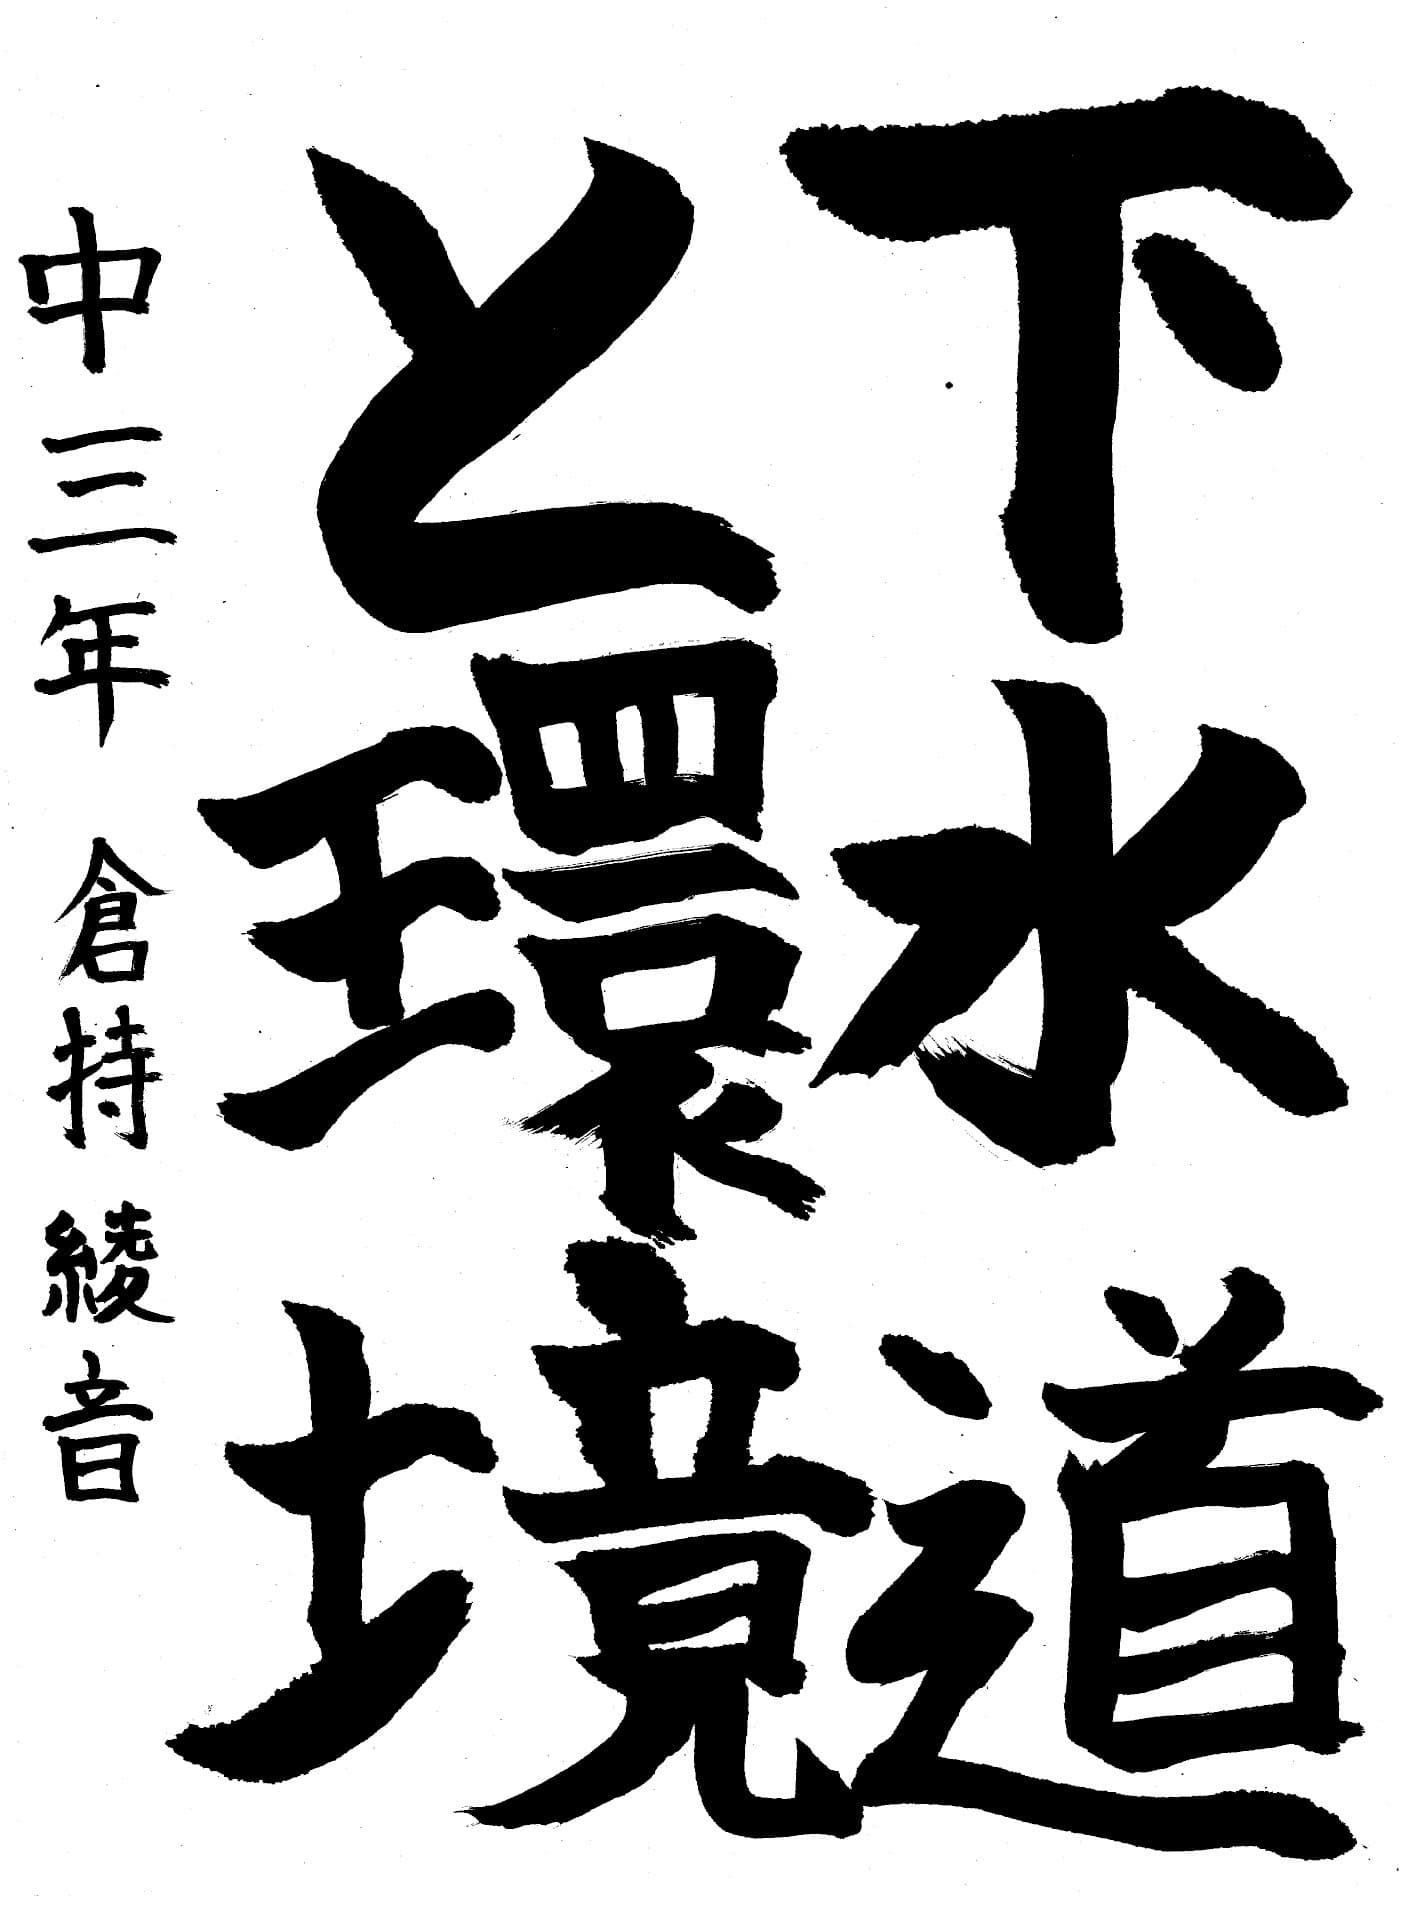 下水道
と環境
中三年 倉持綾音